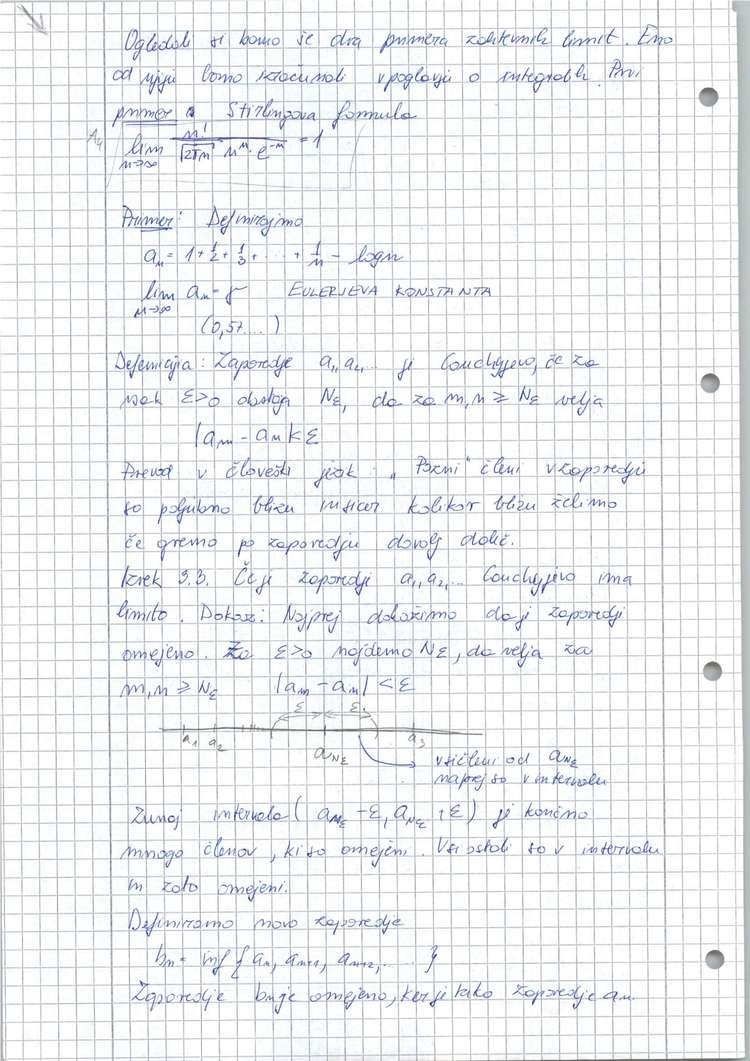 Ogledali si bomo še dva primera zahtevnih limit. Eno
od njiju bomo izračunali v poglavju o integralih. Prvi
primer: Stirlingova formula
A4 lim n→∞ n! / (√2πn · n^n · e^-n) = 1
Primer: Definirajmo
a_n = 1 + 1/2 + 1/3 + ... + 1/n - log n
lim n→∞ a_n = γ EULERJEVA KONSTANTA
(0,57...)
Definicija: Zaporedje a_1, a_2, ... je Cauchyjevo, če za
vsak ε>0 obstaja N_ε, da za m,n ≥ N_ε velja
|a_m - a_n| < ε
Prevod v človeški jezik: "Pozni" členi v zaporedju
so poljubno blizu in sicer kolikor blizu želimo
če gremo po zaporedju dovolj daleč.
Izrek 3.3. Če je zaporedje a_1, a_2, ... Cauchyjevo ima
limito. Dokaz: Najprej dokažimo da je zaporedje
omejeno. Za ε>0 najdemo N_ε, da velja za
m,n ≥ N_ε |a_m - a_n| < ε
ε ε
a_1 a_2 a_Nε a_3
vsi členi od a_Nε
naprej so v intervalu
Zunaj intervala (a_Nε - ε, a_Nε + ε) je končno
mnogo členov, ki so omejeni. Vsi ostali so v intervalu
in zato omejeni.
Definiramo novo zaporedje
b_n = inf { a_n, a_n+1, a_n+2, ... }
Zaporedje b_n je omejeno, ker je tako zaporedje a_n.